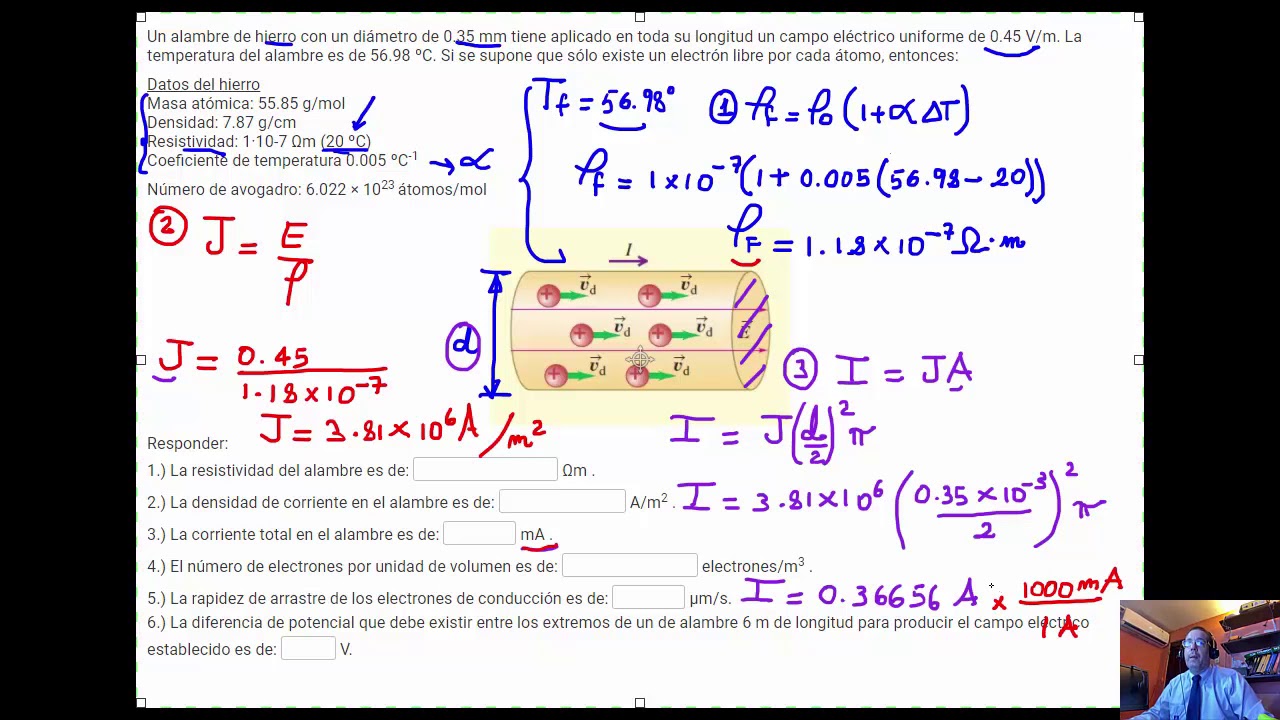 Un alambre de hierro con un diámetro de 0.35 mm tiene aplicado en toda su longitud un campo eléctrico uniforme de 0.45 V/m. La
temperatura del alambre es de 56.98 ºC. Si se supone que sólo existe un electrón libre por cada átomo, entonces:
Datos del hierro
Masa atómica: 55.85 g/mol
Densidad: 7.87 g/cm
Resistividad: 1·10-7 Ωm (20 ºC)
Coeficiente de temperatura 0.005 ºC⁻¹ → α
Número de avogadro: 6.022 × 10²³ átomos/mol
Tf = 56.98°
① ρf = ρo (1+α ΔT)
ρf = 1×10⁻⁷(1 + 0.005(56.98 − 20))
ρF = 1.18×10⁻⁷ Ω·m
② J = E/ρ
J = 0.45/1.18×10⁻⁷
J = 3.81×10⁶ A/m²
d
I
v⃗d v⃗d
v⃗d v⃗d E⃗
v⃗d v⃗d
③ I = JA
I = J(d/2)² π
I = 3.81×10⁶ (0.35×10⁻³/2)² π
I = 0.36656 A × 1000mA/1A
Responder:
1.) La resistividad del alambre es de: Ωm .
2.) La densidad de corriente en el alambre es de: A/m² .
3.) La corriente total en el alambre es de: mA .
4.) El número de electrones por unidad de volumen es de: electrones/m³ .
5.) La rapidez de arrastre de los electrones de conducción es de: μm/s.
6.) La diferencia de potencial que debe existir entre los extremos de un de alambre 6 m de longitud para producir el campo eléctrico
establecido es de: V.